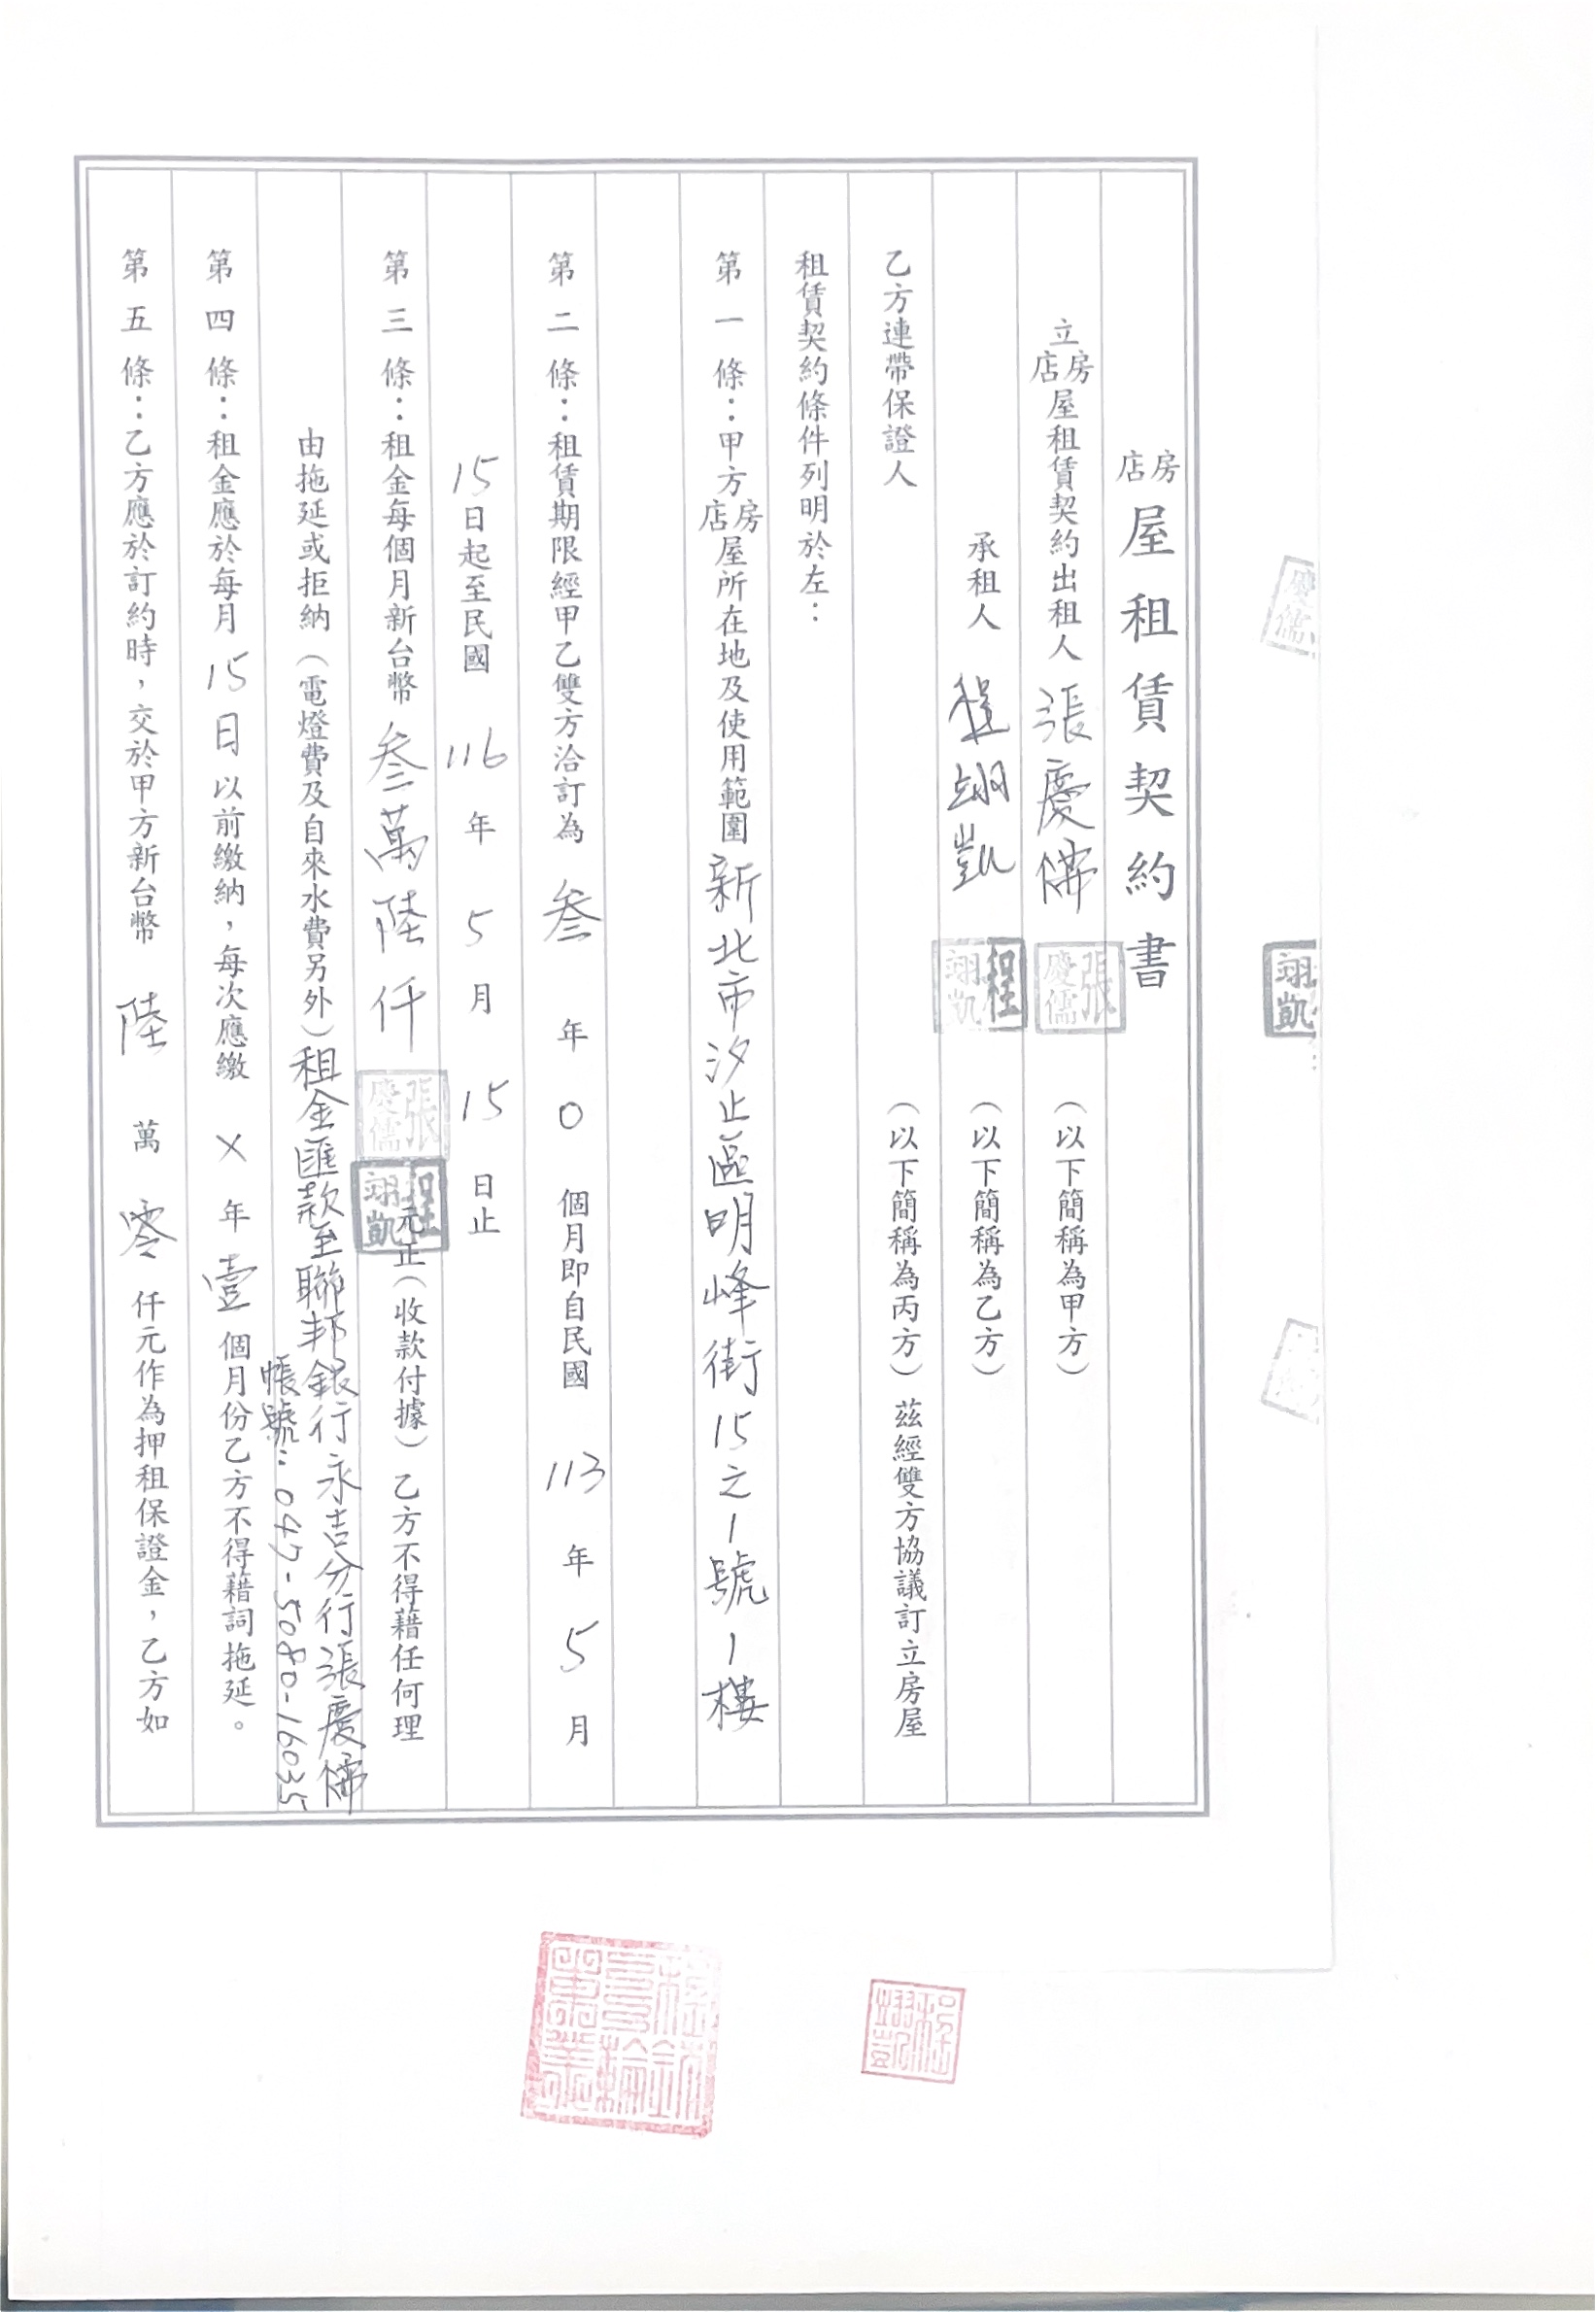 房店屋租賃契約書
立房店屋租賃契約出租人 張慶儒 張慶儒 (以下簡稱為甲方)
承租人 程翊凱 程翊凱 (以下簡稱為乙方)
乙方連帶保證人 (以下簡稱為丙方) 茲經雙方協議訂立房屋
租賃契約條件列明於左:
第一條:甲方房店屋所在地及使用範圍 新北市汐止區明峰街15之1號1樓
第二條:租賃期限經甲乙雙方洽訂為 叁 年 0 個月即自民國 113 年 5 月
15 日起至民國 116 年 5 月 15 日止
第三條:租金每個月新台幣 叁萬陸仟 張慶儒 程翊凱 元正(收款付據)乙方不得藉任何理
由拖延或拒納(電燈費及自來水費另外)租金匯款至聯邦銀行永吉分行張慶儒
帳號:047-5080-16035
第四條:租金應於每月 15 日 以前繳納,每次應繳 X 年 壹 個月份乙方不得藉詞拖延。
第五條:乙方應於訂約時,交於甲方新台幣 陸 萬 零 仟元作為押租保證金,乙方如
慶儒
翊凱
程翊凱